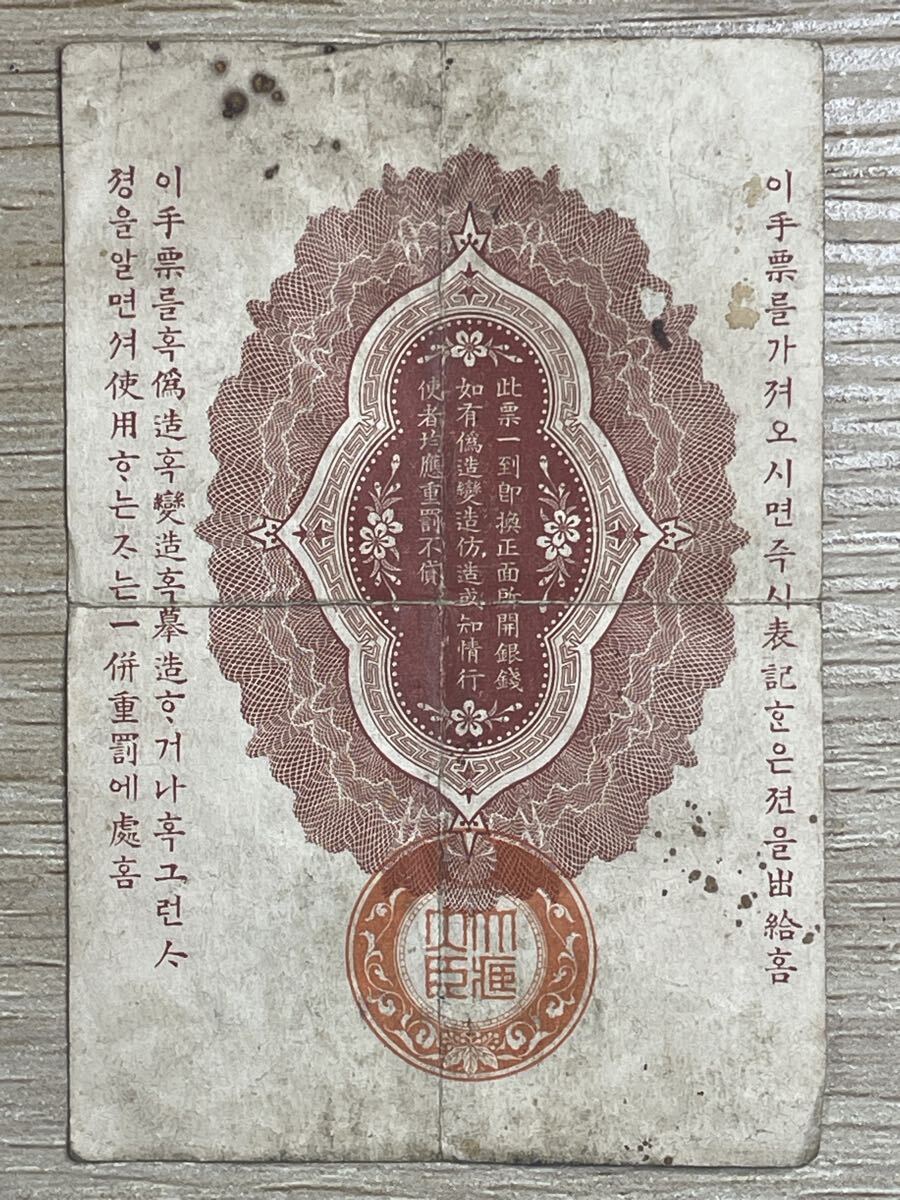 이手票를가져오시면즉시表記ᄒᆞᆫ은젼을出給홈
此票一到卽換正面所開銀錢
如有僞造變造仿造或知情行
使者均應重罰不貸
이手票를혹僞造혹變造혹摹造ᄒᆞ거나혹그런ᄉᆞ
졍을알면셔使用ᄒᆞ는ᄌᆞ는一併重罰에處홈
大匯
大臣